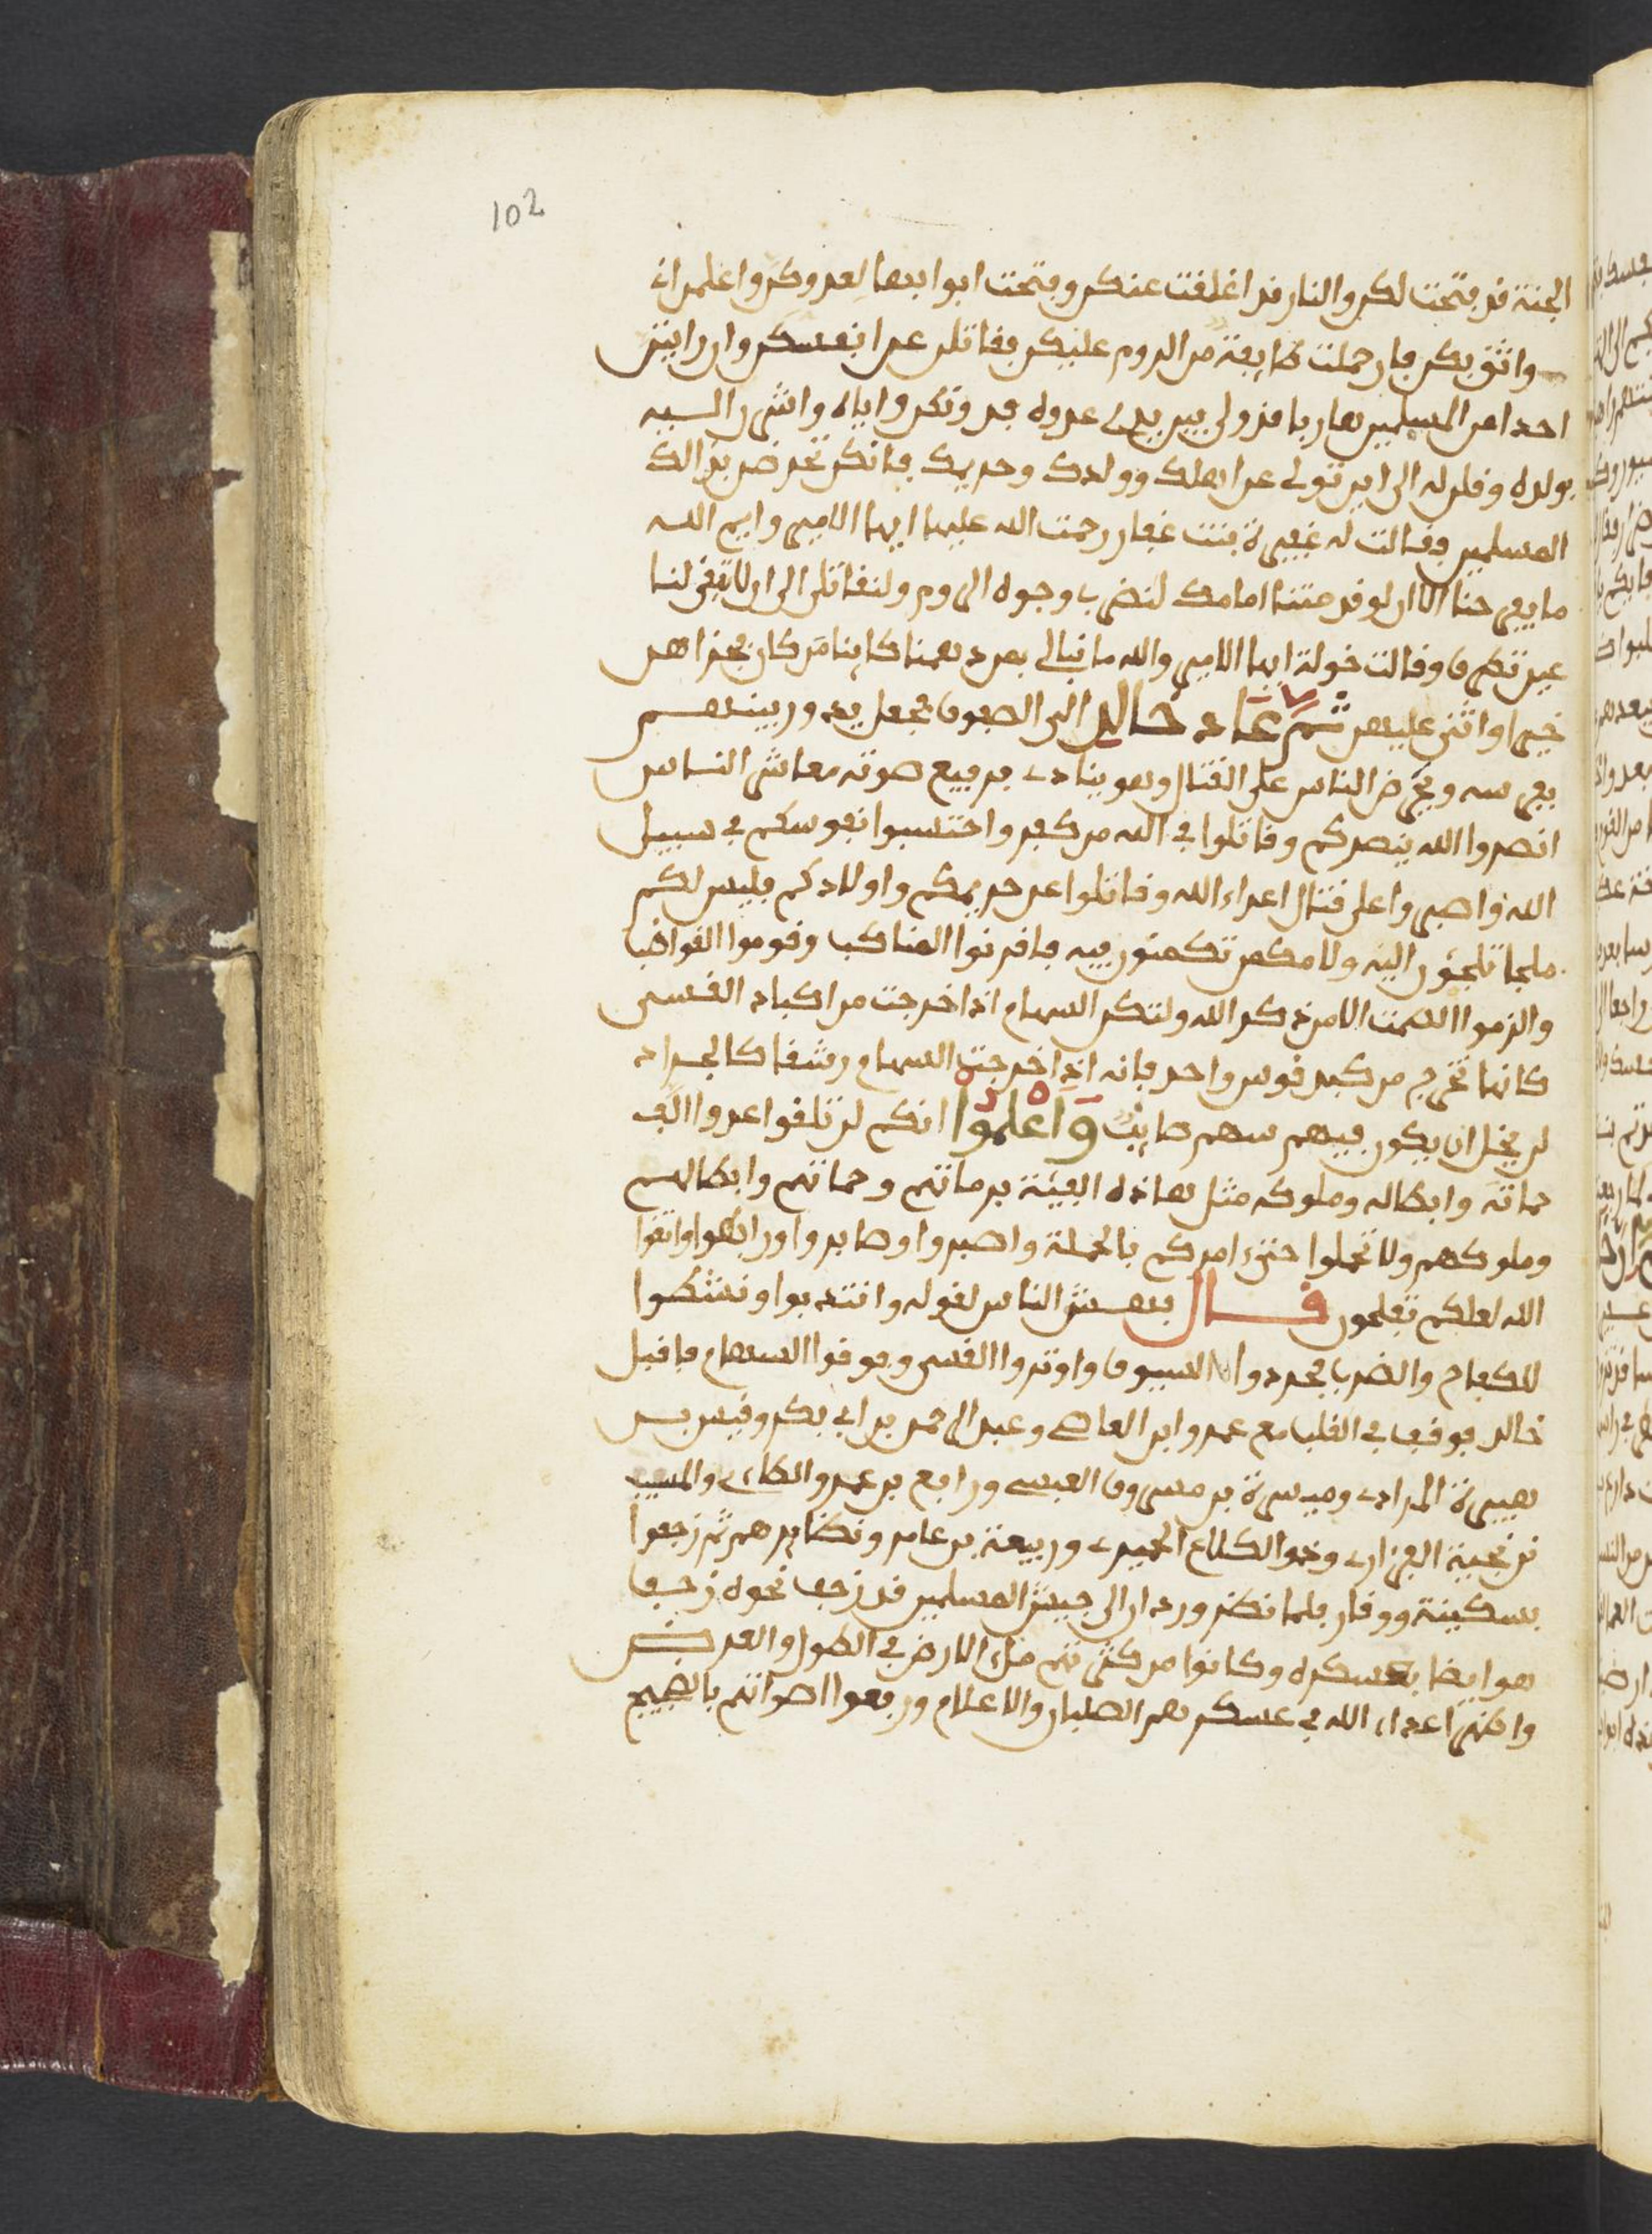 102
الجنة قد فتحت لكن والنار قد اغلقت عنكن وفتحت ابوابها لعدوكن واعلمن ان
واثق بكن فان حملت طايفة من الروم عليكن فقاتلن عن انفسكن وان رايتن
احدا من المسلمين هاربا قد ولى بين يدي عدوه فدونكن واياه واشرن اليه
بولده وقلن له الى اين تولى عن اهلك وولدك وحريمك فانكن تحرضن بذالك
المسلمين فقالت له عفيرة بنت غفار رحمت الله عليها ايها الامير وايم الله
ما يفرحنا الا ان لو قد متنا امامك لنضرب وجوه الروم ولنقاتلن الى ان لا تبقى لنا
عين تطرف وقالت خولة ايها الامير والله ما نبالي بمن دهمنا كاينا من كان فجزاهن
خيرا واثنى عليهن ثم عاد خالد الى الصفوف فجعل يدور بينهم
بفرسه ويحرض الناس على القتال وهو ينادي برفيع صوته معاشر الناس
انصروا الله ينصركم وقاتلوا في الله من كفر واحتسبوا نفوسكم في سبيل
الله واصبروا على قتال اعداء الله وقاتلوا عن حريمكم واولادكم فليس لكم
ملجا تلجئون اليه ولا مكمن تكمنون فيه فاقرنوا المناكب وقوموا القواضب
والزموا الصمت الا من ذكر الله ولتكن السهام اذا خرجت من اكباد القسي
كانها تخرج من كبد قوس واحد فانه اذا خرجت السهام رشقا كالجراد
لم يخل ان يكون فيهم سهم صايب واعلموا انكم لن تلقوا عدوا الف
حماته وابطاله وملوكه مثل هاذه الفئة برماتهم وحماتهم وابطالهم
وملوكهم ولا تحملوا حتى ءامركم بالحملة واصبروا وصابروا ورابطوا واتقوا
الله لعلكم تفلحون قال فهش الناس لقوله وانتدبوا ونشطوا
للكفاح والضرب فجردوا السيوف واوتروا القسي وفوقوا السهام فاقبل
خالد فوقف في القلب مع عمرو ابن العاصي وعبد الرحمن بن ابي بكر وقيس بن
هبيرة المرادي وميسرة بن مسروق العبسي ورافع بن عمرو الطاءي والمسيب
بن نجيبة الفزاري وذو الكلاع الحميري وربيعة بن عامر ونظايرهم ثم زحفوا
بسكينة ووقار فلما نظر وردان الى جيش المسلمين قد زحف نحوه زحف
هو ايضا بعسكره وكانوا من كثرتهم ملء الارض في الطول والعرض
واظهر اعداء الله في عسكرهم الصلبان والاعلام ورفعوا اصواتهم بالضجيج